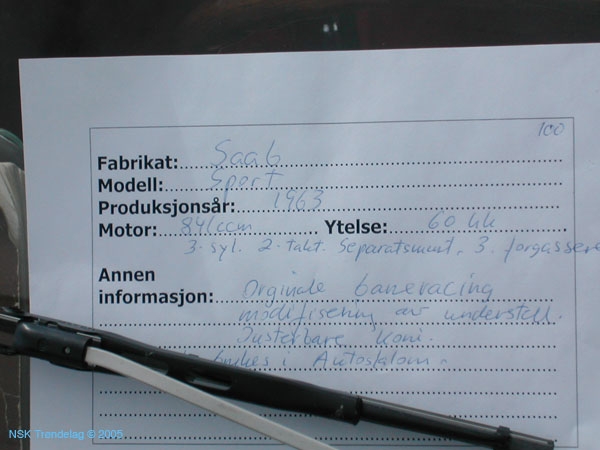 100
Fabrikat: Saab
Modell: Sport
Produksjonsår: 1963
Motor: 841ccm Ytelse: 60 hk
3-syl. 2-takt. Separatsmurt, 3. forgassere
Annen
informasjon: Orginale baneracing
modifisering av understell.
Justerbare Koni.
Brukes i Autoslalom.
NSK Trøndelag © 2005